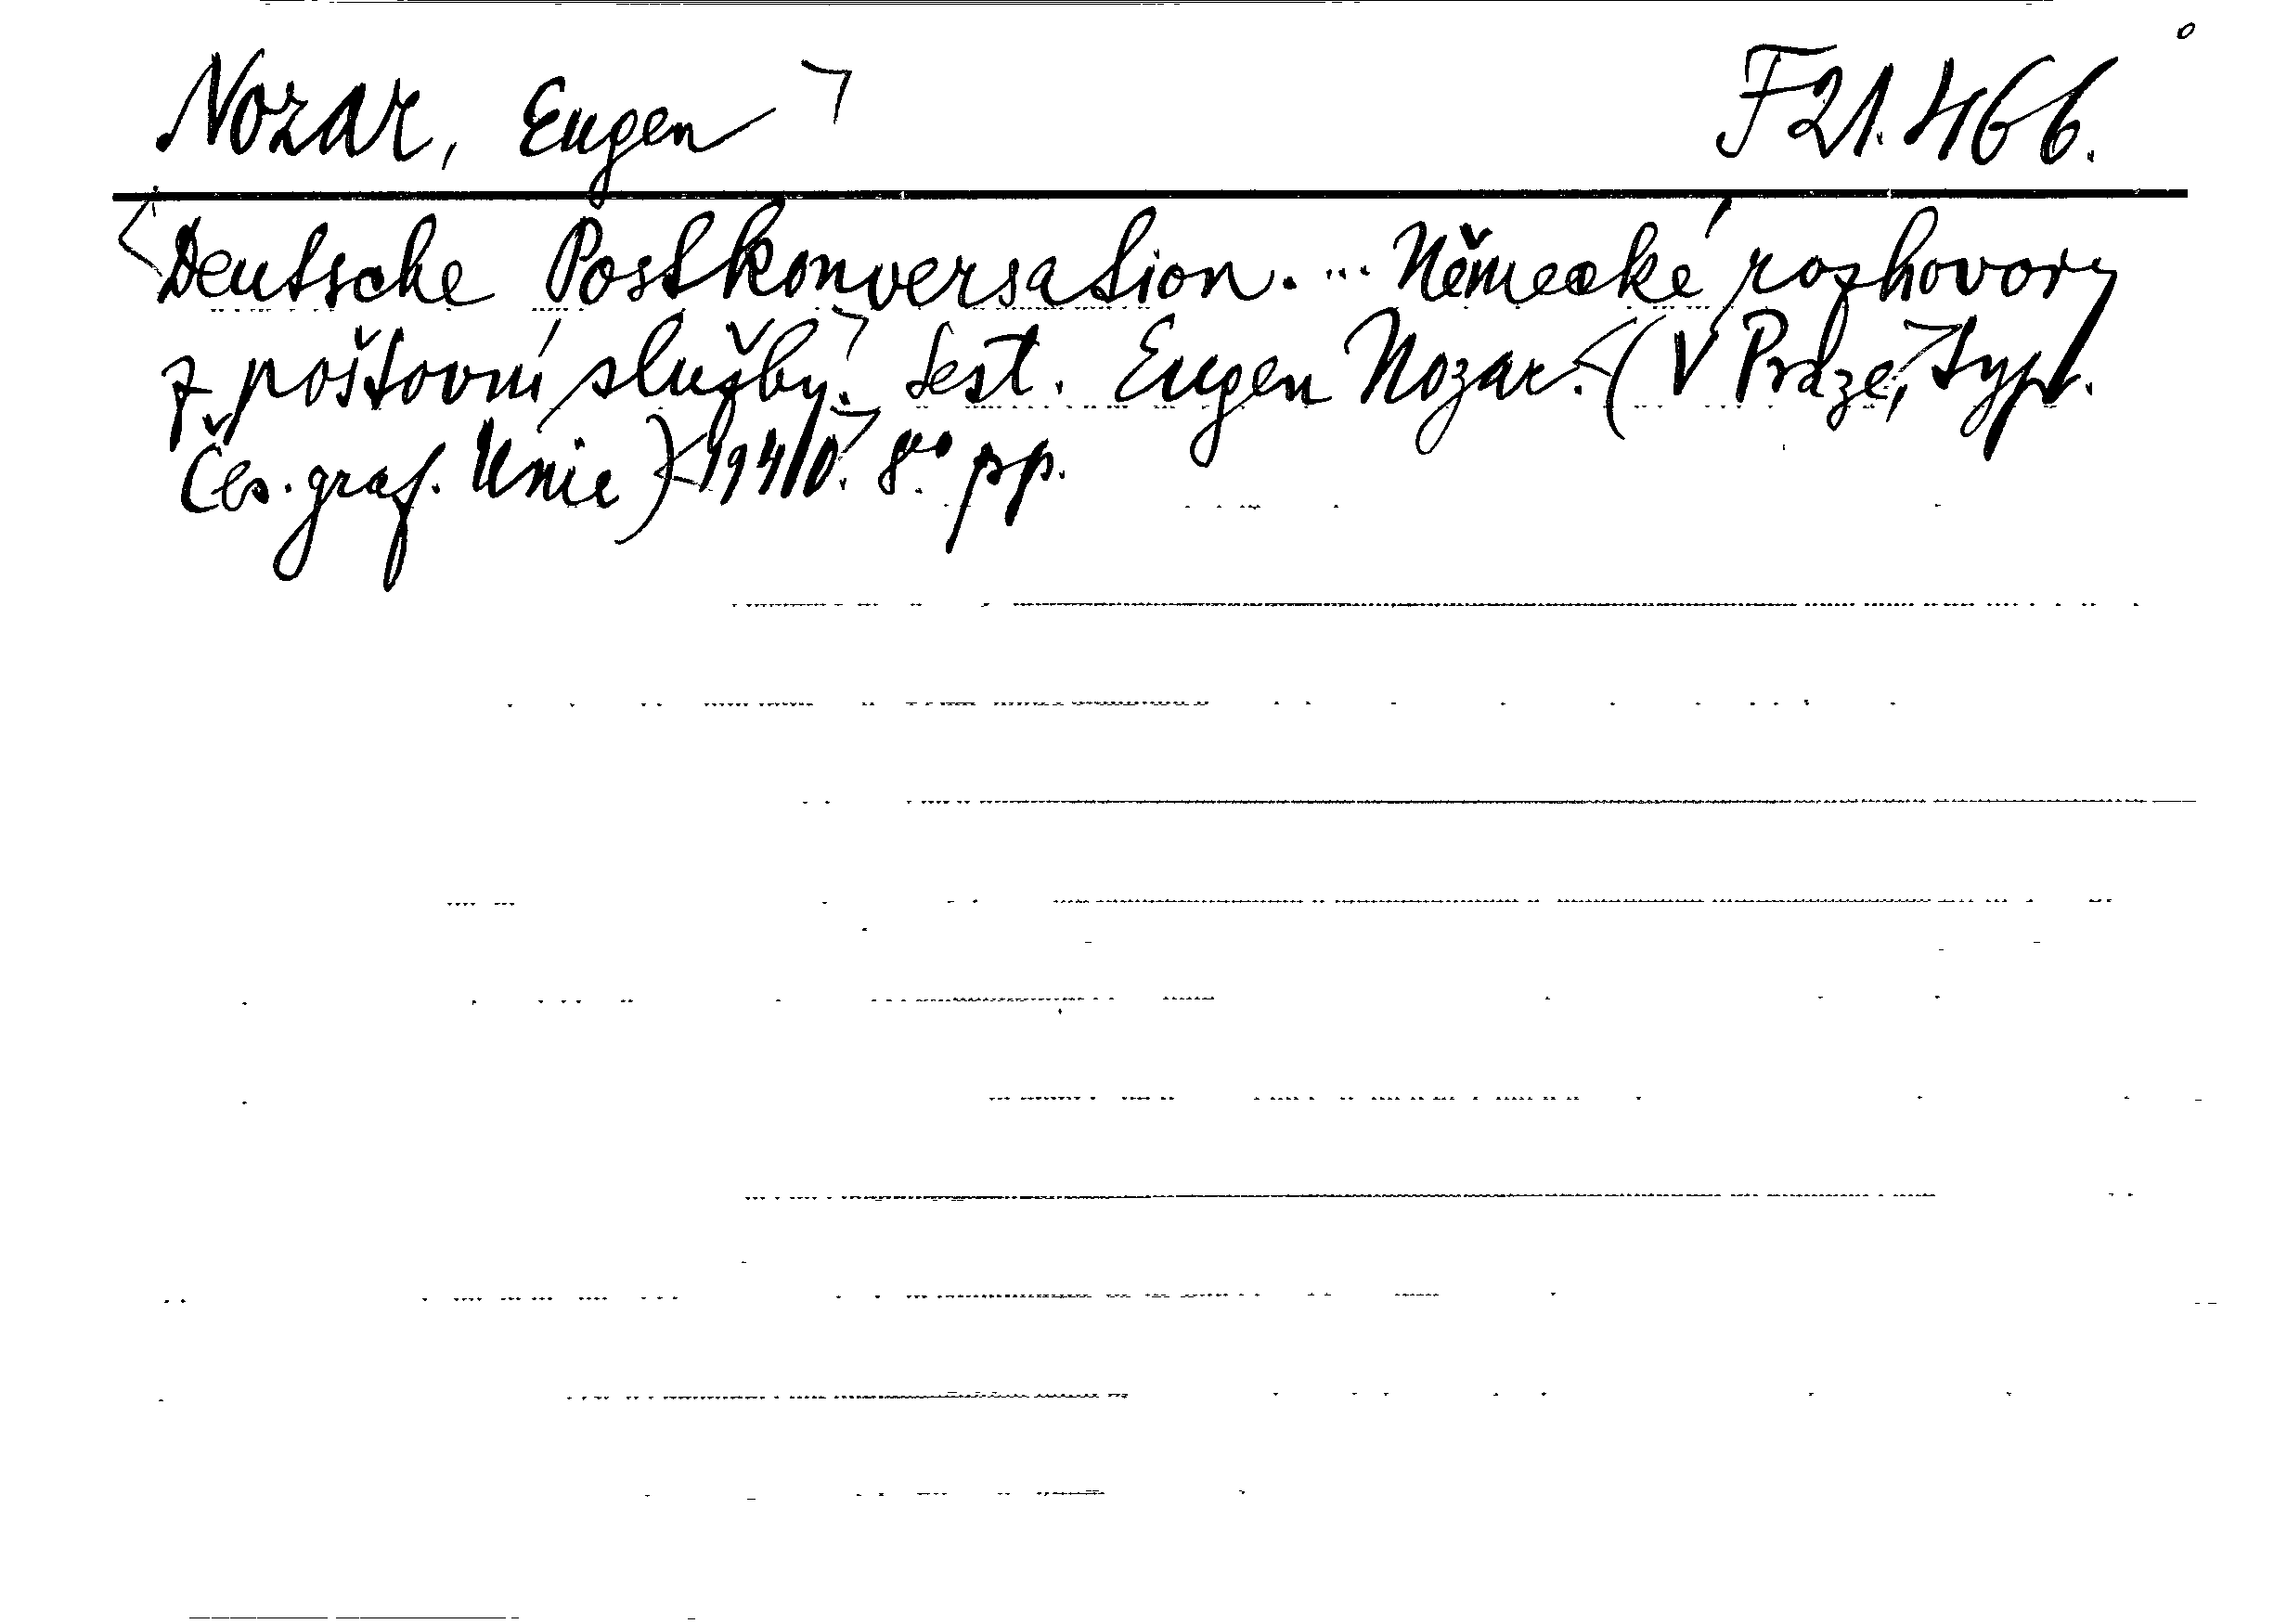 Nozar, Eugen ⌝ F 21.466.
<Deutsche Postkonversation. ... Německé rozhovory
z poštovní služby.⌝ Sest. Eugen Nozar.<(V Praze,⌝ typ.
Čes. graf. Unie)<1940.⌝ 8° pp.